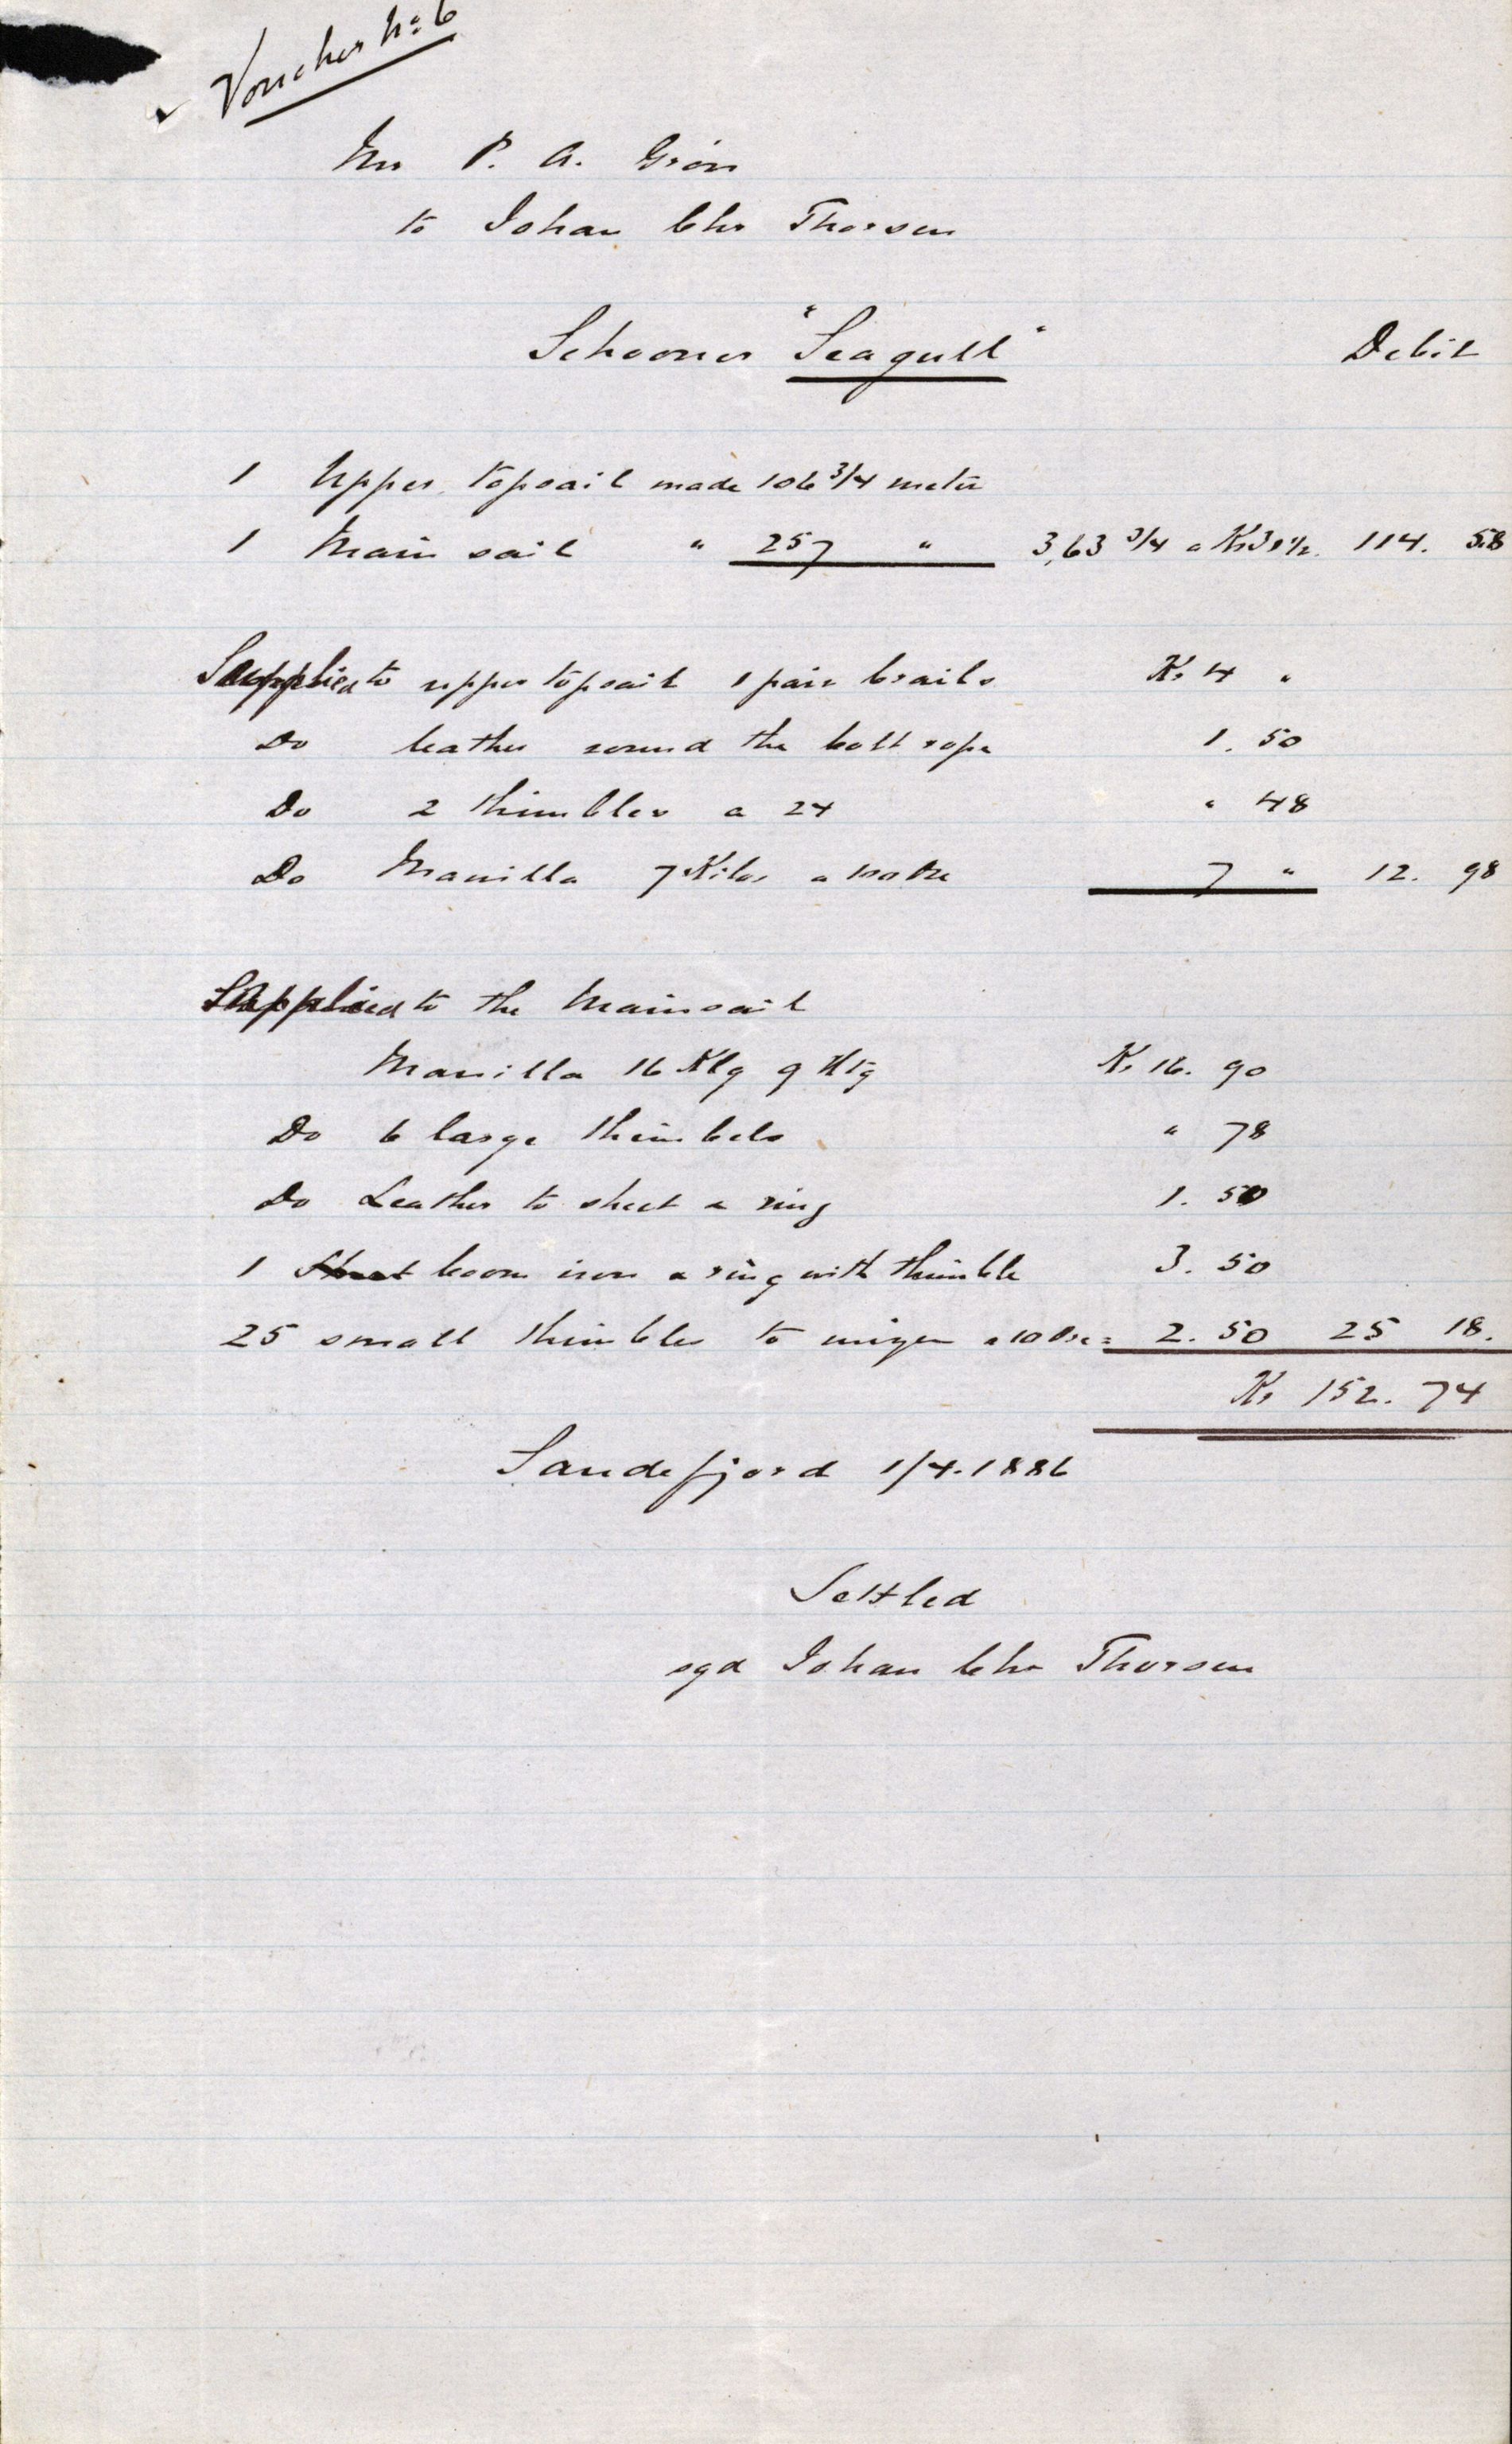 Voucher No 6
Mr P. A. Grön
to Johan Chr Thorsen
Schooner "Seagull" Debit
1 Upper topsail made 106 3/4 meter
1 Main sail " 257 " 3,63 3/4 a Kr 31 1/2. 114. 58
Supplied to upper topsail 1 pair brails Kr 4 "
Do leather round the bolt rope 1. 50
Do 2 thimbles a 24 " 48
Do Manilla 7 Kilos a 100 Øre 7 " 12. 98
Supplied to the Mainsail
Manilla 16 Klg 9 Htg Kr 16. 90
Do 6 large thimbels " 78
Do Leather to sheet a ring 1. 50
1 boom iron a ring with thimble 3. 50
25 small thimbles to mizen a 10 Øre = 2. 50 25 18.
Kr 152. 74
Sandefjord 1/4. 1886
Settled
sgd Johan Chr Thorsen